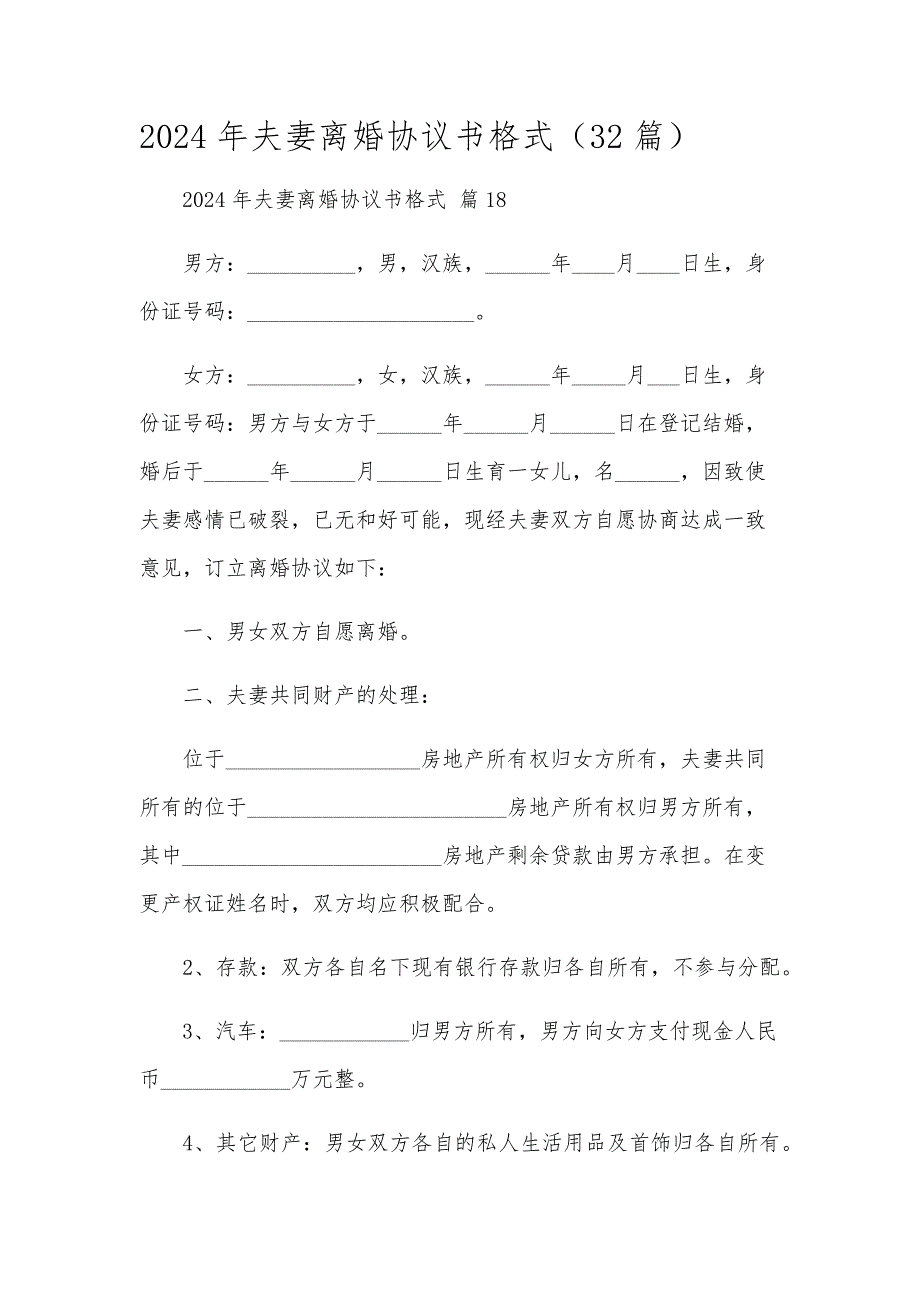 2024年夫妻离婚协议书格式（32篇）
2024年夫妻离婚协议书格式 篇18
男方：__________，男，汉族，______年____月____日生，身
份证号码：_____________________。
女方：__________，女，汉族，______年_____月___日生，身
份证号码：男方与女方于______年______月______日在登记结婚，
婚后于______年______月______日生育一女儿，名______，因致使
夫妻感情已破裂，已无和好可能，现经夫妻双方自愿协商达成一致
意见，订立离婚协议如下：
一、男女双方自愿离婚。
二、夫妻共同财产的处理：
位于__________________房地产所有权归女方所有，夫妻共同
所有的位于________________________房地产所有权归男方所有，
其中________________________房地产剩余贷款由男方承担。在变
更产权证姓名时，双方均应积极配合。
2、存款：双方各自名下现有银行存款归各自所有，不参与分配。
3、汽车：____________归男方所有，男方向女方支付现金人民
币____________万元整。
4、其它财产：男女双方各自的私人生活用品及首饰归各自所有。